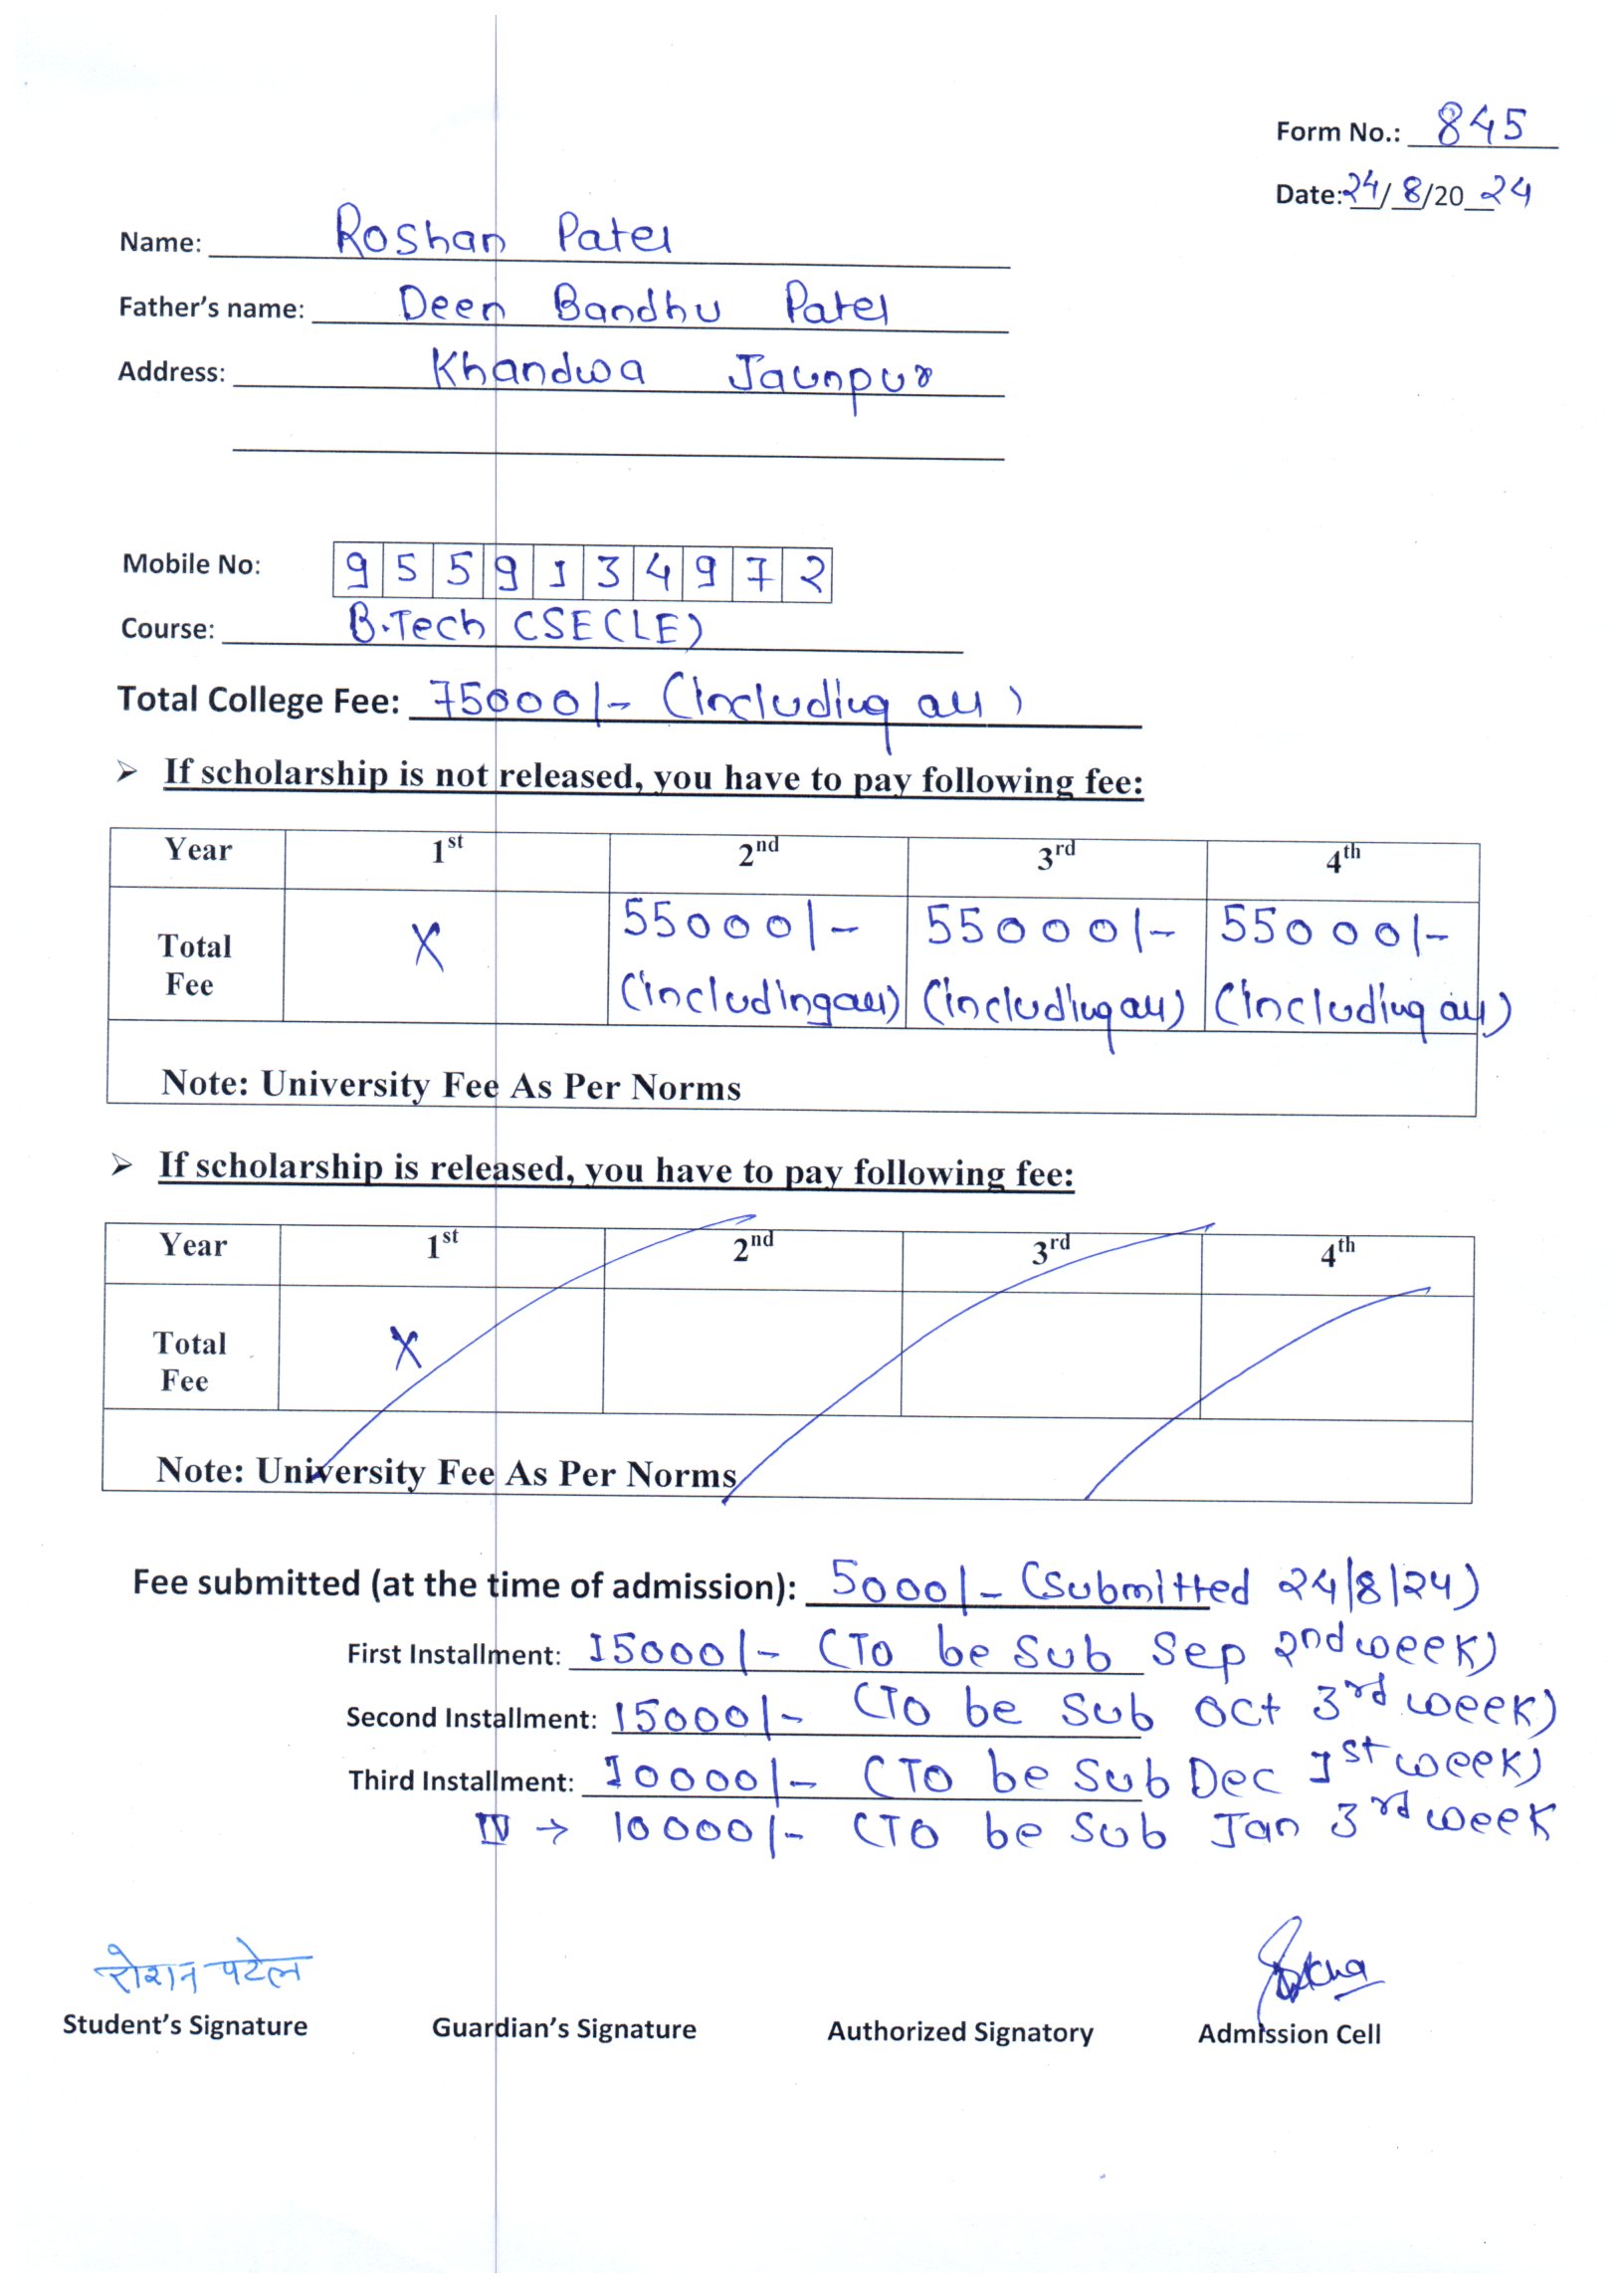 Form No.: 845
Date: 24/8/2024
Name: Roshan Patel
Father's name: Deen Bandhu Patel
Address: Khandwa Jaunpur
Mobile No: 9559134972
Course: B.Tech CSE(LE)
Total College Fee: 75000/- (Including all)
➢ If scholarship is not released, you have to pay following fee:
Year 1st 2nd 3rd 4th
Total Fee X 55000/- (including all) 55000/- (including all) 55000/- (including all)
Note: University Fee As Per Norms
➢ If scholarship is released, you have to pay following fee:
Year 1st 2nd 3rd 4th
Total Fee X
Note: University Fee As Per Norms
Fee submitted (at the time of admission): 5000/- (Submitted 24/8/24)
First Installment: 15000/- (To be Sub Sep 2nd week)
Second Installment: 15000/- (To be Sub Oct 3rd week)
Third Installment: 10000/- (To be Sub Dec 1st week)
IV → 10000/- (To be Sub Jan 3rd week
रोशन पटेल
Student's Signature Guardian's Signature Authorized Signatory Admission Cell